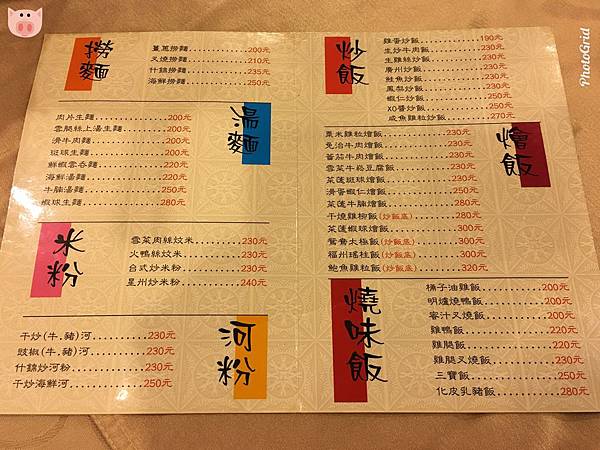 撈麵
薑蔥撈麵............200元
叉燒撈麵............210元
什錦撈麵............235元
海鮮撈麵............250元
湯麵
肉片生麵............200元
雲腿絲上湯生麵............200元
滑牛肉麵............200元
斑球生麵............200元
鮮蝦雲吞麵............220元
海鮮湯麵............220元
牛腩湯麵............250元
蝦球生麵............280元
米粉
雪菜肉絲炆米............230元
火鴨絲炆米............230元
台式炒米粉............230元
星州炒米粉............240元
河粉
干炒(牛.豬)河............230元
豉椒(牛.豬)河............230元
什錦炒河粉............230元
干炒海鮮河............250元
炒飯
雞蛋炒飯............190元
生炒牛肉飯............230元
生炒雞絲飯............230元
廣州炒飯............230元
鮭魚炒飯............230元
鳳梨炒飯............230元
蝦仁炒飯............250元
XO醬炒飯............250元
咸魚雞粒炒飯............270元
燴飯
粟米雞粒燴飯............230元
免治牛肉燴飯............230元
蕃茄牛肉燴飯............230元
雪菜牛崧豆腐飯............230元
菜蓬斑球燴飯............250元
滑蛋蝦仁燴飯............250元
菜蓬牛腩燴飯............250元
干燒雞柳飯(炒飯底)............280元
菜蓬蝦球燴飯............300元
鴛鴦太極飯(炒飯底)............300元
福州瑤柱飯(炒飯底)............300元
鮑魚雞粒飯(炒飯底)............320元
燒味飯
梅子油雞飯............200元
明爐燒鴨飯............200元
蜜汁叉燒飯............200元
雞鴨飯............220元
雞腿飯............220元
雞腿叉燒飯............230元
三寶飯............250元
化皮乳豬飯............280元
PhotoGrid